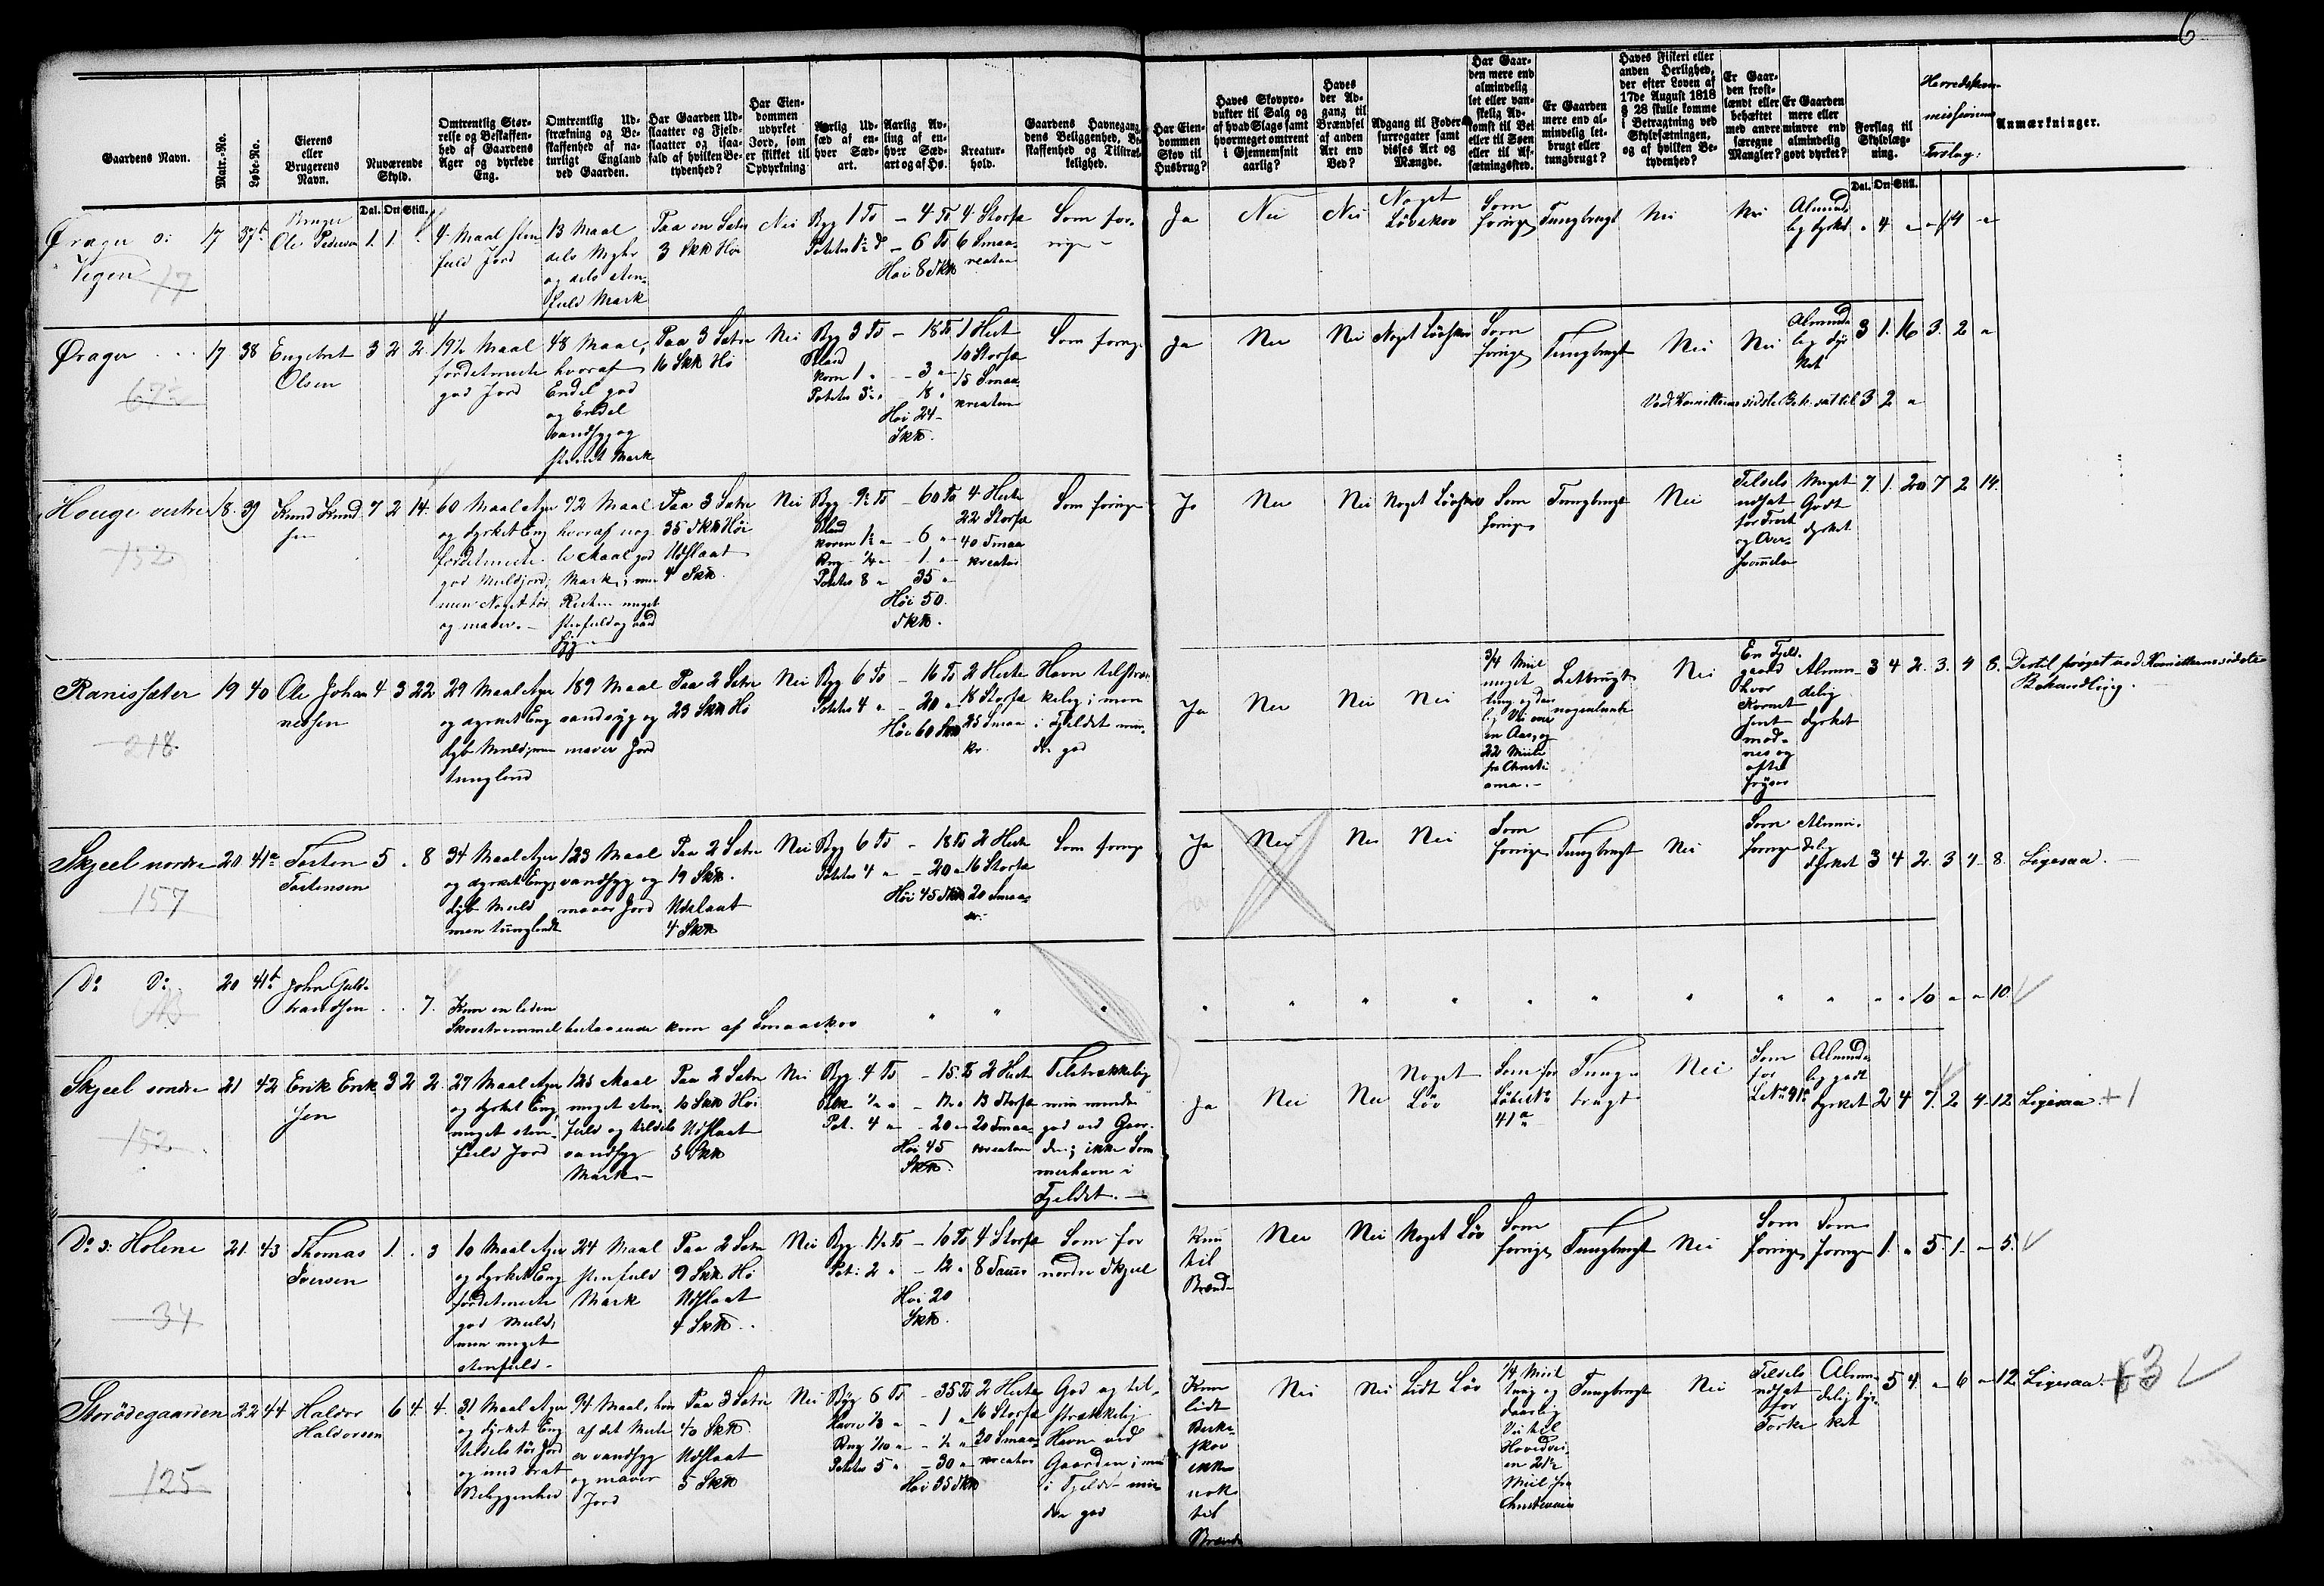 6
Gaardens Navn.
Matr.-No.
Løbe-No.
Eierens
eller
Brugerens
Navn.
Nuværende
Skyld.
Dal. Ort Skill.
Omtrentlig Stør-
relse og Beskaffen-
hed af Gaardens
Ager og dyrkede
Eng.
Omtrentlig Ud-
strækning og Be-
skaffenhed af na-
turligt England
ved Gaarden.
Har Gaarden Ud-
slaatter og Fjeld-
slaatter og isaa-
fald af hvilken Be-
tydenhed?
Har Eien-
dommen
udyrket
Jord, som
er skikket til
Opdyrkning
Aarlig Ud-
sæd af en-
hver Sæd-
art.
Aarlig Av-
ling af en-
hver Sæd-
art og af Hø.
Kreatur-
hold.
Gaardens Havnegang,
dens Beliggenhed, Be-
skaffenhed og Tilstræk-
kelighed.
Har Eien-
dommen
Skov til
Husbrug?
Haves Skovpro-
dukter til Salg og
af hvad Slags samt
hvormeget omtrent
i Gjennemsnit
aarlig?
Haves
der Ad-
gang til
Brændsel
af anden
Art end
Ved?
Adgang til Foder-
surrogater samt
disses Art og
Mængde.
Har Gaar-
den mere end
almindelig
let eller van-
skelig Ad-
komst til Vei
eller til Søen
eller til Af-
sætningssted.
Er Gaarden
mere end al-
mindelig let-
brugt eller
tungbrugt?
Haves Fiskeri eller
anden Herlighed,
der efter Loven af
17de August 1818
§ 28 skulle komme
i Betragtning ved
Skyldsætningen,
og af hvilken Be-
tydenhed?
Er Gaar-
den frost-
lændt eller
behæftet
med andre
særegne
Mangler?
Er Gaarden
mere eller
mindre end
almindelig
godt dyrket?
Forslag til
Skyldlæg-
ning.
Dal. Ort Skill.
Herredskom-
missionens
Forslag:
Anmærkninger.
Ørager o:
Vigen
17
17 37b
Bruger
Ole Pedersen
1. 1.
4 Maal sten
fuld Jord
13 Maal
dels Myhr
og dels sten-
fuld Mark
Paa en Sæter
3 Sk℔ Høi
Nei
Byg 1 Tø – 4 Tø
Potetes 1½ d – 6 Tø
Høi 8 Sk℔
4 Storfæ
6 Smaa-
kreatur
Som for-
rige –
Ja
Nei
Nei
Noget
Løvskov
Som
forrige
Tungbrugt
Nei
Nei
Almind-
lig dyrket
" 4 " " 4 "
Ørager
67½
17 38
Engebret
Olsen
3 2 2
19½ Maal
fordetmeste
god Jord
48 Maal,
hvoraf
Endel god
og Endel
vandsyg og
stenet Mark
Paa 3 Sætre
16 Sk℔ Hø
Nei
Byg 3 Tø – 18 Tø
Bland
korn 1 " – 3 "
Potetes 3½ " 18 "
Høi 24
Sk℔.
1 Hest
10 Storfæ
15 Smaa
kreature
Som forrige
Ja
Nei
Nei
Noget Løvskov
Som
forrige
Tungbrugt
Nei
Nei
Alminde-
lig dyr
ket
3 1. 16 3. 2 "
Ved Komitteens sidste Beh. sat til 3 2 "
Houge vestre
152
18. 39
Knud Knud
sen
7 2 14.
60 Maal Ager
og dyrket Eng
fordetmeste
god Muldjord,
men Noget tør
og mager. –
72 Maal
hvoraf nog
le Maal god
Mark, men
Resten meget
stenfuld og vand
syg
Paa 3 Sætre
35 Sk℔ Høi
Udslaat
4 Sk℔.
Nei
Byg 9½ Tø – 60 Tø
Bland
korn 1½ " – 6 "
Rug ¼ " – 1 "
Potetes 8 " 35 "
Høi 50.
Sk℔.
4 Heste
22 Storfæ
40 Smaa
kreatur
Som forrige
Ja
Nei
Nei
Noget Løvskov
Som
forrige
Tungbrugt
Nei
Tilsels
udsat
for Frost
og Over-
svømmelse
Meget
Godt
dyrket
7. 1. 20 7 2 14.
Ranissæter
218
19 40
Ole Johan
nessen
4 3 22
29 Maal Ager
og dyrket Eng
dyb Muld, men
tunglend
189 Maal
vandsyg og
mager Jord
Paa 2 Sætre
23 Sk℔ Hø
Nei
Byg 6 Tø – 16 Tø
Potetes 4 " – 20 "
Høi 60 Sk℔
2 Heste
18 Storfæ
25 Smaa
kr.
Havn tilstræk-
kelig; men
i Fjeldet min-
dre god
Ja
Nei
Nei
Nei
3/4 Miil
meget
tung og daar
lig Vei over
en Aas, og
22 Miile
fra Christi
ania. –
Letbrugt
nogenlunde
Nei
En Fjeld-
gaard
hvor
Kornet
sent
mod-
nes og
ofte
fryser
Almin-
delig
dyrket
3 4 2. 3. 4 8.
Dertil forøget ved Komitteens sidste
Behandling.
Skjeel nordre
157
20 41a
Tosten
Tostensen
5 . 8
34 Maal Ager
og dyrket Eng,
dyb Muld
men tunglendt
123 Maal
vandsyg og
mager Jord
Paa 2 Sætre
19 Sk℔.
Udslaat
4 Sk℔
Nei
Byg 6 Tø – 18 Tø
Potetes 4 " – 20 "
Høi 45 Sk℔
2 Heste
16 Storfæ
20 Smaa-
kr.
Som forrige
Ja
Nei
Nei
Nei
Som
forrige
Tungbrugt
Nei
Som
forrige
Almin-
delig
dyrket
3 4 2. 3 4 8.
Ligesaa.
Do Do
20 41b
John Guld-
brandsen
. . 7.
Kun en liden
Skovstrimmel bestaaende kun af Smaaskov
" " "
" " " " " " " " " " " 10 " " 10
Skjeel søndre
152
21 42
Erik Erik
sen
3 2 2.
27 Maal Ager
og dyrket Eng,
meget sten-
fuld Jord
125 Maal
meget sten-
fuld og tildels
vandsyg
Mark –
Paa 2 Sætre
10 Sk℔ Høi
Udslaat
5 Sk℔
Nei
Byg 4 Tø – 15. Tø
Pot. 4 " – 20 "
Høi 45
Sk℔.
2 Heste
13 Storfæ
20 Smaa-
kreature
Tilstrækkelig
men mindre
god ved Gaar-
den; ikke Som
merhavn i
Fjeldet. –
Ja
Nei
Nei
Noget
Løv
Som for
Løbe No
41a
Tung-
brugt
Nei
Som
for
L. No 41a
Alminde-
lig godt
dyrket
2 4 7. 2 4 12
Ligesaa. +1
Do o: Holene
34
21. 43
Thomas
Iversen
1. . 3
10 Maal Ager
og dyrket Eng
fordetmeste
god Muld,
men meget
stenfuld –
24 Maal
stenfuld
Mark
Paa 2 Sætre
9 Sk℔ Hø
Udslaat
4 Sk℔.
Nei
Byg 1½ Tø – 10 Tø
Pot. 2 " – 12 "
Høi 20
Sk℔.
4 Storfæ
8 Sauer
Som for
nordre Skjeel
Kun
til
Brænde
Nei
Nei
Noget Løv
Som
forrige
Tungbrugt
Nei
Som
forrige
Som
forrige
1. " 5. 1. " 5.
Storødegaarden
125
22 44
Haldor
Haldorsen
6 4. 4.
31 Maal Ager
og dyrket Eng
tildels tør Jord
og med brat
Beliggenhed
94 Maal, hvor
af det Meste
er vandsyg
og mager
Jord
Paa 3 Sætre
40 Sk℔.
Udslaat
5 Sk℔
Nei
Byg 6 Tø – 35 Tø
Havre ⅓ " – 1 "
Rug 1/10 " – ½ "
Potetes 5 " – 30 "
Høi 35 Sk℔
2 Heste
16 Storfæ
30 Smaa-
kreatur
God og til-
strækkelig
Havn ved
Gaarden; men
i Fjeldet min
dre god
Kun
lidt
Birke-
skov
ikke
nok
til
Brænde
Nei
Nei
Lidt Løv
1/4 Miil
tung og
daarlig
Vei til
Hovedvei
en 21½
Miil fra
Christiania
Tungbrugt
Nei
Tilsels
udsat
for
Tørke
Almin-
delig dyr-
ket
5 4. " 6 " 12
Ligesaa. +3